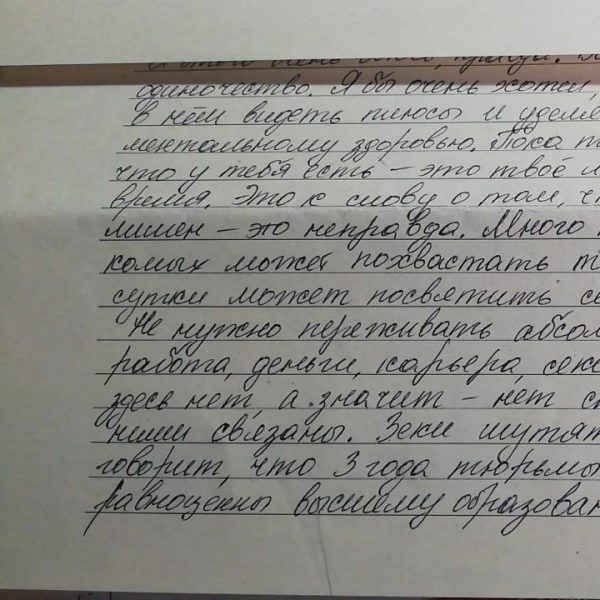 одиночество. Я бы очень хотел,
в нём видеть плюсы и уделя
ментальному здоровью. Пока т
что у тебя есть – это твоё л
время. Это к слову о том, ч
лишен – это неправда. Много
комых может похвастать т
сутки может посвятить се
Не нужно переживать абсол
работа, деньги, карьера, секс
здесь нет, а значит – нет с
ними связаны. Зеки шутят
говорит, что 3 года тюрьмы
равноценны высшему образован